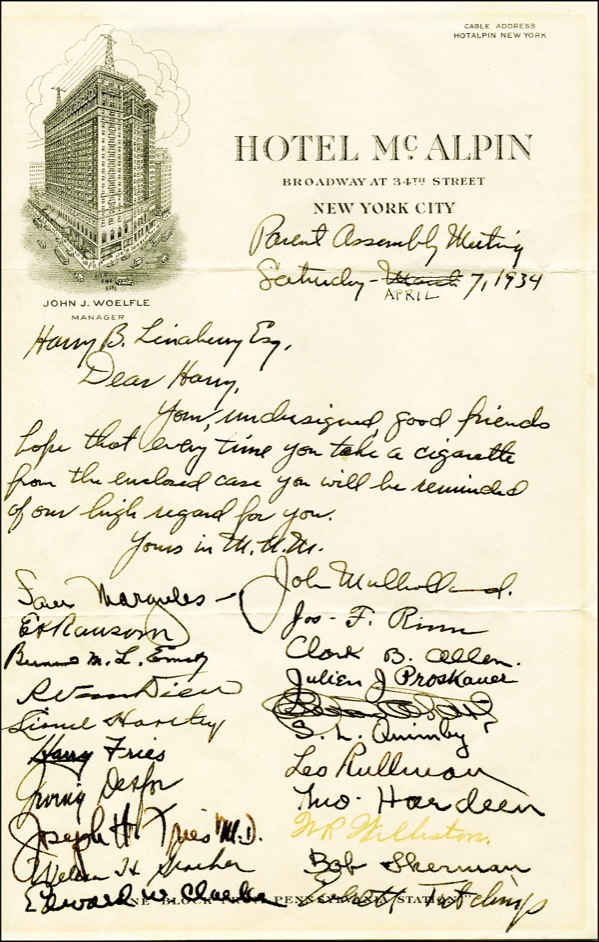 CABLE ADDRESS
HOTALPIN NEW YORK
HOTEL McALPIN
BROADWAY AT 34TH STREET
NEW YORK CITY
JOHN J. WOELFLE
MANAGER
Parent Assembly Meeting
Saturday - March 7, 1934
APRIL
Harry B. Linaberry Esq.
Dear Harry,
Your, undersigned, good friends
hope that every time you take a cigarette
from the enclosed case you will be reminded
of our high regard for you.
Yours in M.U.M.
Sam Margules - John Mulholland.
Ed Ransom Jos. F. Rinn
M. L. Clark B. Allen.
Julien J Proskauer
Lionel Hartley S. L. Quimby
Harry Fries Leo Rullman
Irving Desfor Theo. Hardeen
Joseph H. Fries M.D. W R Williston.
Bob Sherman
Edward W. Clarke Elliott
ONE BLOCK FROM PENNSYLVANIA STATION